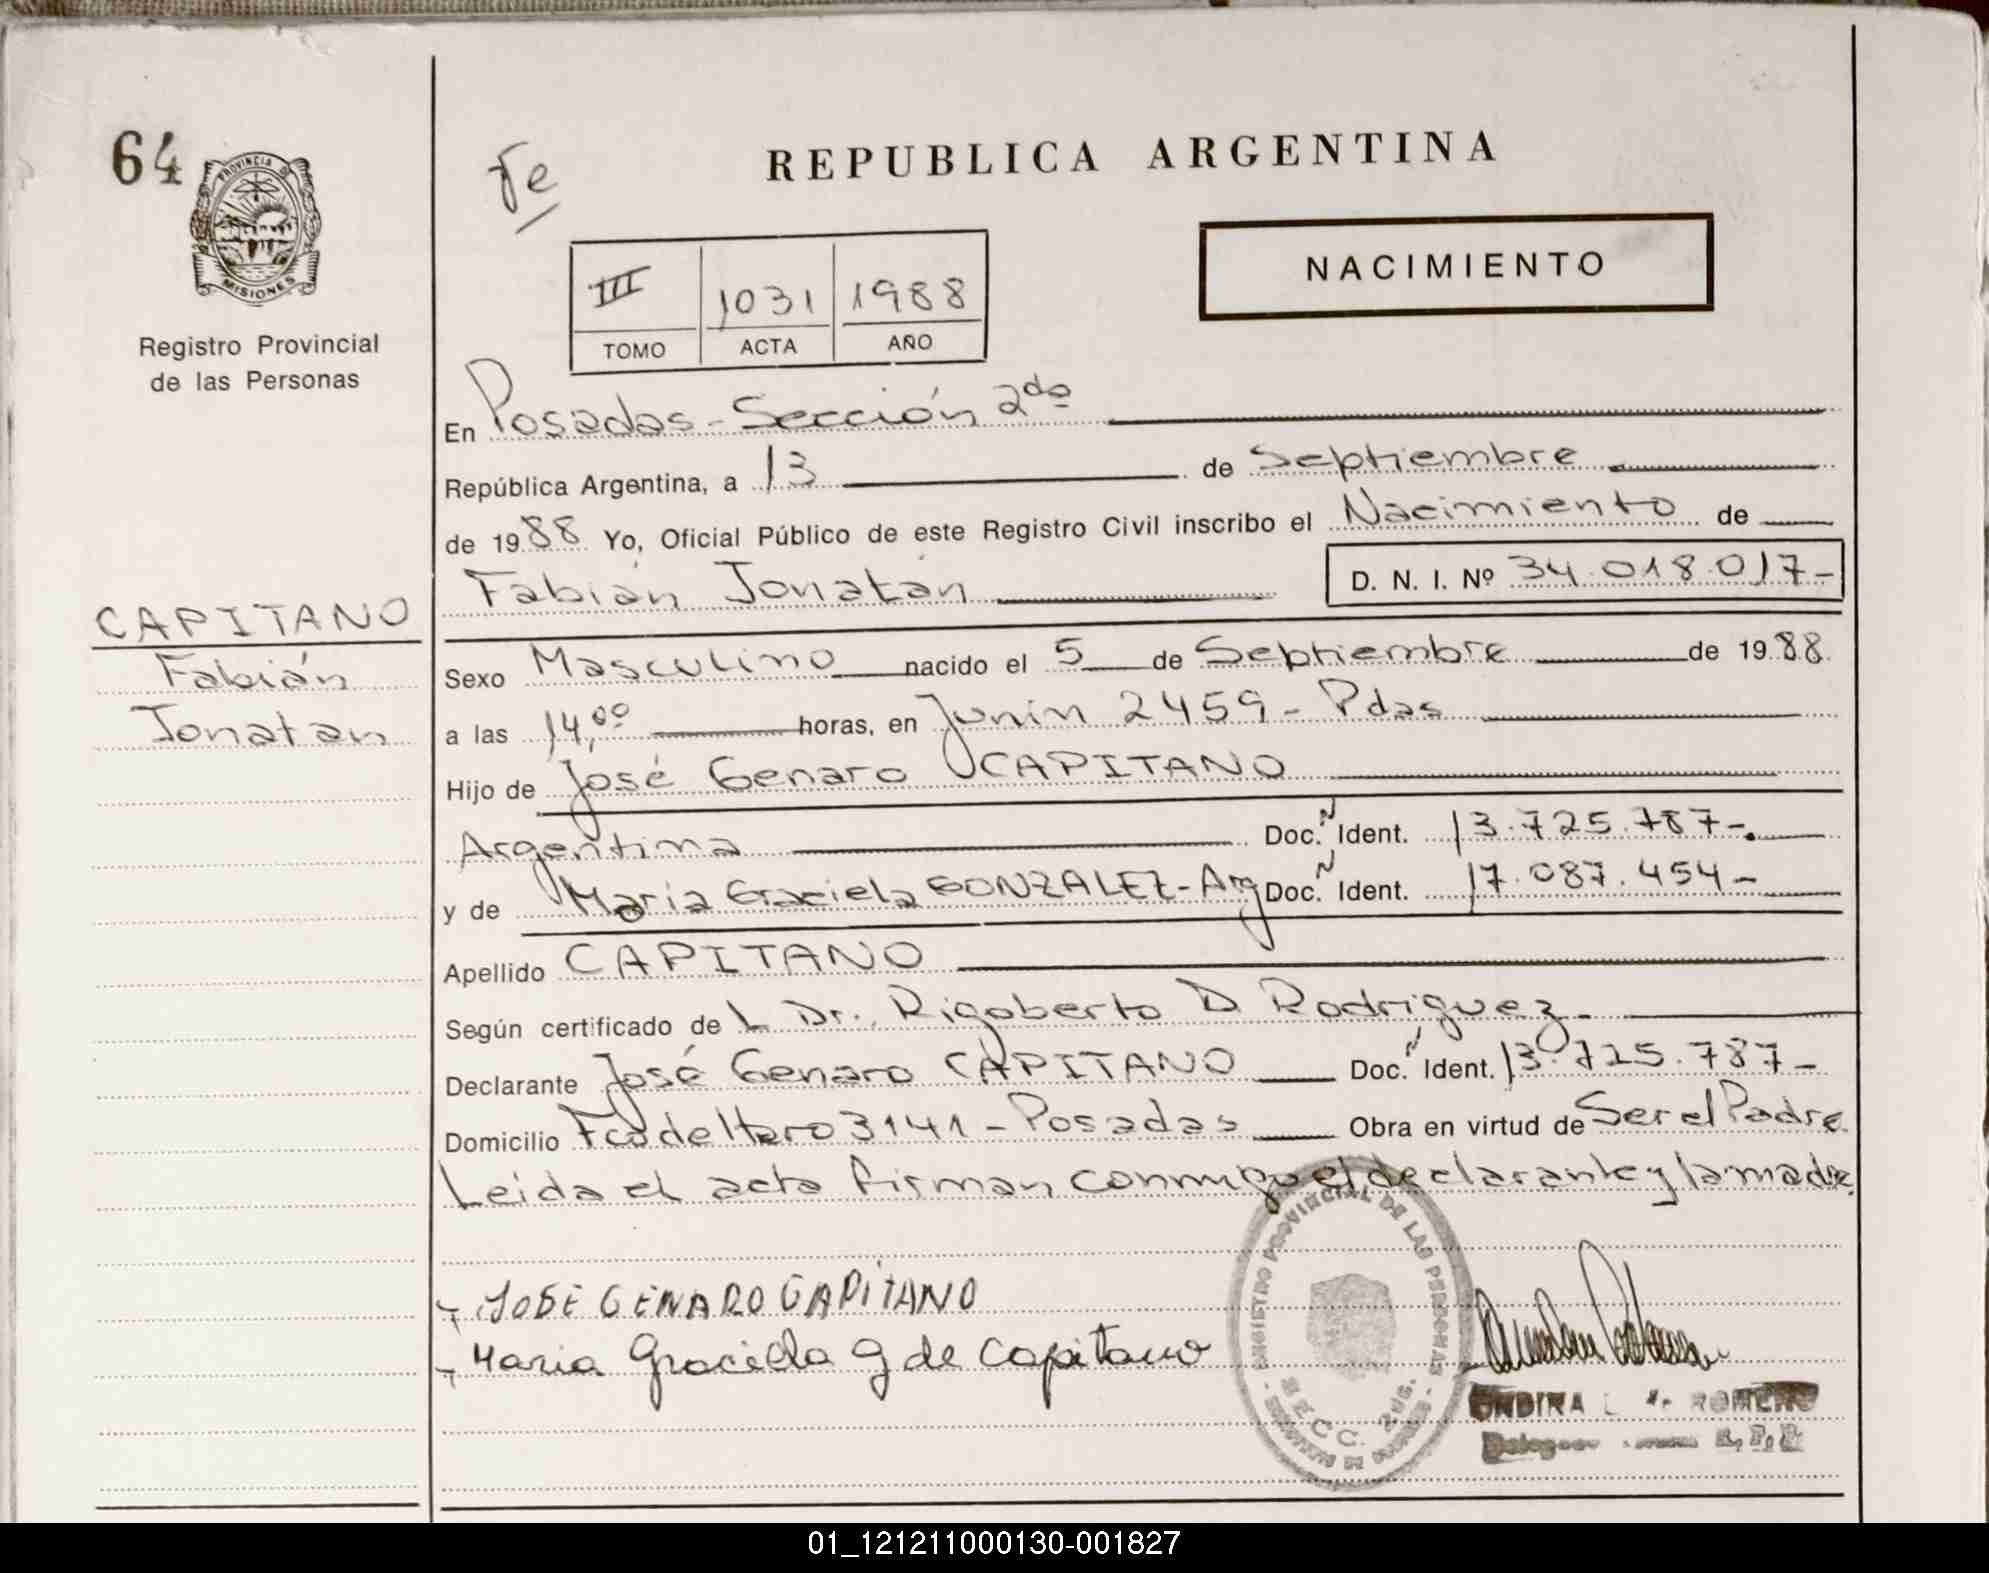 64
PROVINCIA DE
MISIONES
Registro Provincial
de las Personas
CAPITANO
Fabián
Jonatan
REPUBLICA ARGENTINA
NACIMIENTO
III 1031 1988
TOMO ACTA AÑO
En Posadas - Sección 2da
República Argentina, a 13 de Septiembre
de 1988 Yo, Oficial Público de este Registro Civil inscribo el Nacimiento de
Fabián Jonatán D. N. I. Nº 34.018.017-
Sexo Masculino nacido el 5 de Septiembre de 1988
a las 14,00 horas, en Junin 2459 - Pdas
Hijo de José Genaro CAPITANO
Argentina Doc. Ident. 13.725.787-
y de Maria Graciela GONZALEZ - Arg Doc. Ident. 17.087.454-
Apellido CAPITANO
Según certificado de L Dr. Rigoberto D Rodriguez
Declarante José Genaro CAPITANO Doc. Ident. 13.725.787-
Domicilio Fco de Haro 3141 - Posadas Obra en virtud de Ser el Padre
Leida el acta firman conmigo el declarante y la madre
JOSE GENARO CAPITANO
Maria Graciela g de Capitano
REGISTRO PROVINCIAL DE LAS PERSONAS
SECC. 2da.
ONDINA ROMERO
01_121211000130-001827